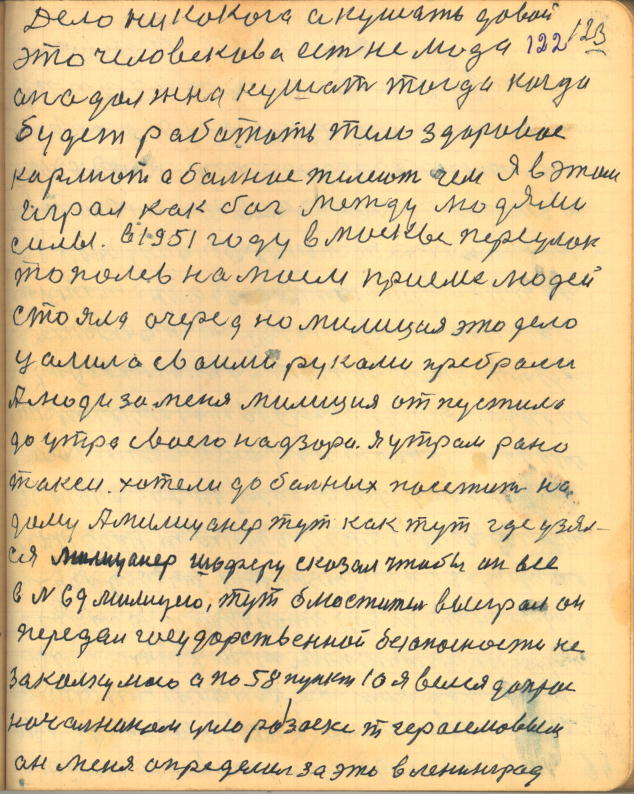 Дело никокога акушать довой
это человекова ест не мода 122 123
она должна кушат тогда когда
будет работать тело здоровое
кормют а балное жмеют чем Я в этом
играл как бог между людями
силы. в 1951 году в москве переулок
тополев на моем приеме людей
стояла очеред но милицая это дело
своими руками пребрали
Алюди за меня милиция отпустила
до утра своего надзора. я утрам рано
такси. хотели до балных посетит на
дому Амилицанер тут как тут где узял-
ся милицанер шоферу сказал чтобы он вез
в N 69 милицею, тут выграл он
передал государственной безопасности не
а по 58 пункт 10 я велся допрос
началнаком герасемовым
он меня определил за это в ленинград